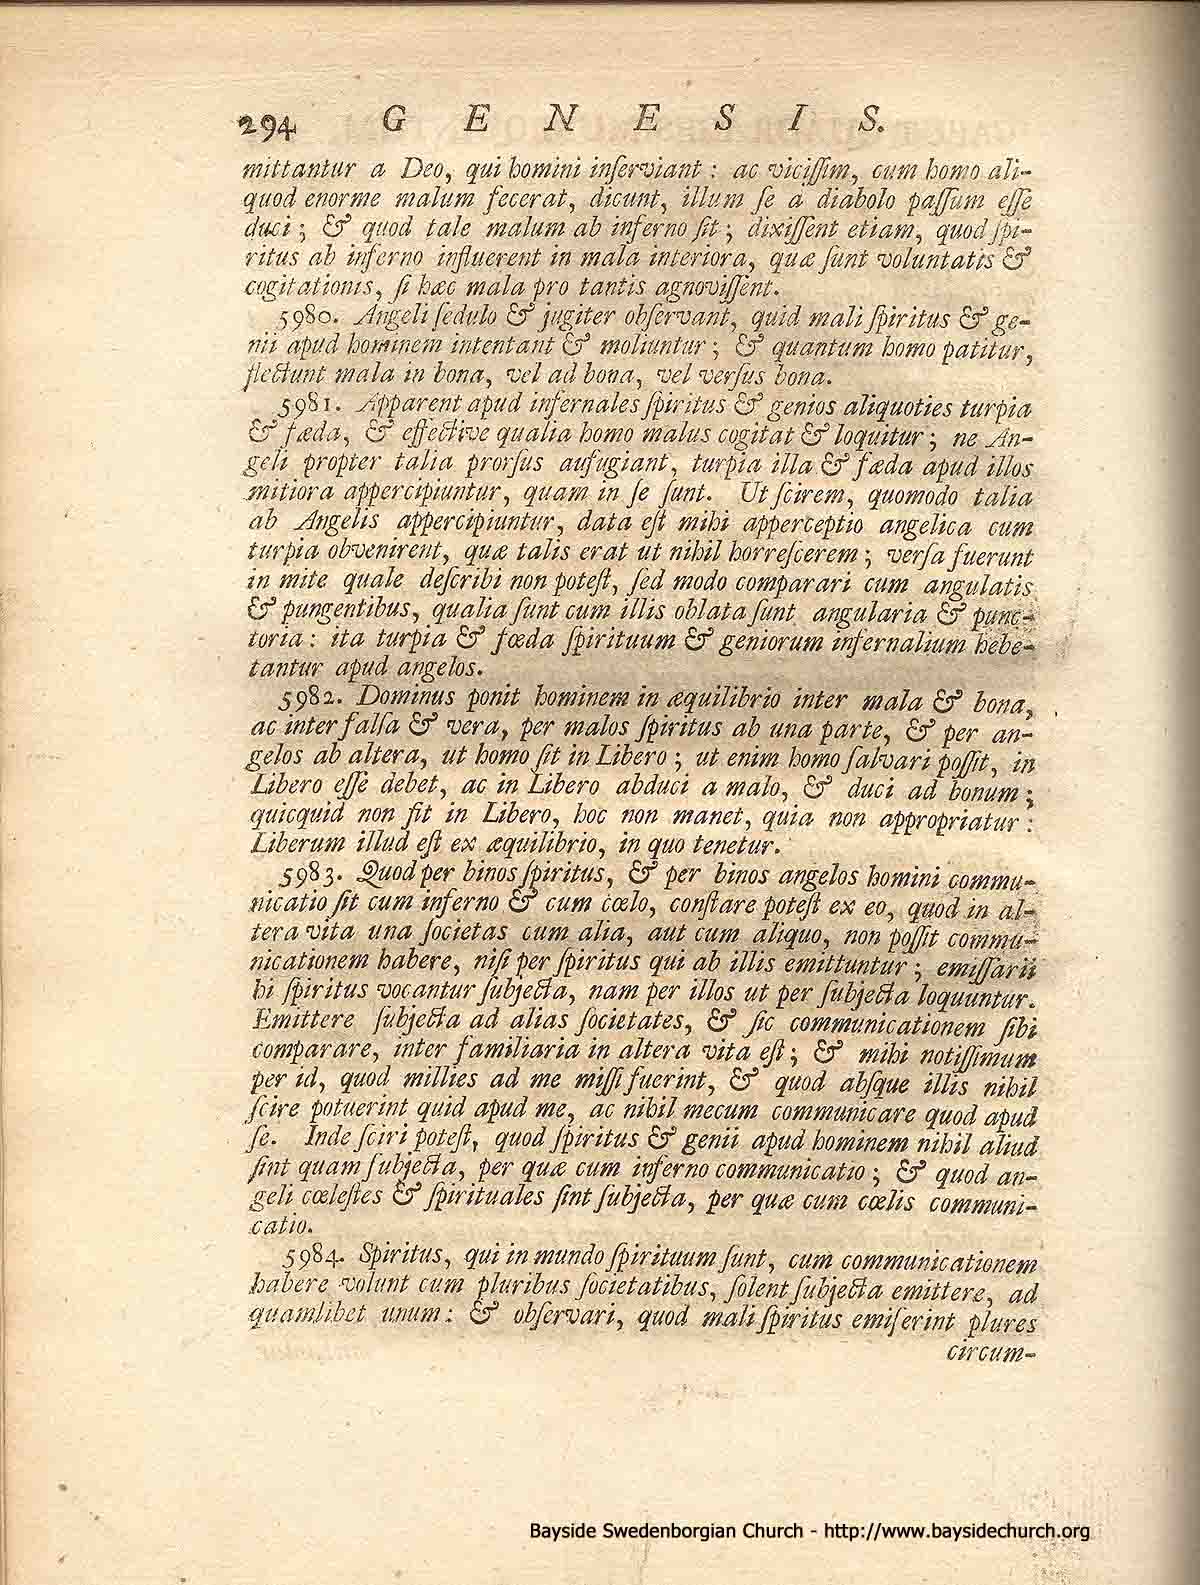 294 G E N E S I S.
mittantur a Deo, qui homini inserviant : ac vicissim, cum homo ali-
quod enorme malum fecerat, dicunt, illum se a diabolo passum esse
duci ; & quod tale malum ab inferno sit ; dixissent etiam, quod spi-
ritus ab inferno influerent in mala interiora, quæ sunt voluntatis &
cogitationis, si hæc mala pro tantis agnovissent.
5980. Angeli sedulo & jugiter observant, quid mali spiritus & ge-
nii apud hominem intentant & moliuntur ; & quantum homo patitur,
flectunt mala in bona, vel ad bona, vel versus bona.
5981. Apparent apud infernales spiritus & genios aliquoties turpia
& fæda, & effective qualia homo malus cogitat & loquitur ; ne An-
geli propter talia prorsus aufugiant, turpia illa & fæda apud illos
mitiora appercipiuntur, quam in se sunt. Ut scirem, quomodo talia
ab Angelis appercipiuntur, data est mihi apperceptio angelica cum
turpia obvenirent, quæ talis erat ut nihil horrescerem ; versa fuerunt
in mite quale describi non potest, sed modo comparari cum angulatis
& pungentibus, qualia sunt cum illis oblata sunt angularia & punc-
toria : ita turpia & fœda spirituum & geniorum infernalium hebe-
tantur apud angelos.
5982. Dominus ponit hominem in æquilibrio inter mala & bona,
ac inter falsa & vera, per malos spiritus ab una parte, & per an-
gelos ab altera, ut homo sit in Libero ; ut enim homo salvari possit, in
Libero esse debet, ac in Libero abduci a malo, & duci ad bonum ;
quicquid non fit in Libero, hoc non manet, quia non appropriatur :
Liberum illud est ex æquilibrio, in quo tenetur.
5983. Quod per binos spiritus, & per binos angelos homini commu-
nicatio sit cum inferno & cum cœlo, constare potest ex eo, quod in al-
tera vita una societas cum alia, aut cum aliquo, non possit commu-
nicationem habere, nisi per spiritus qui ab illis emittuntur ; emissarii
hi spiritus vocantur subjecta, nam per illos ut per subjecta loquuntur.
Emittere subjecta ad alias societates, & sic communicationem sibi
comparare, inter familiaria in altera vita est ; & mihi notissimum
per id, quod millies ad me missi fuerint, & quod absque illis nihil
scire potuerint quid apud me, ac nihil mecum communicare quod apud
se. Inde sciri potest, quod spiritus & genii apud hominem nihil aliud
sint quam subjecta, per quæ cum inferno communicatio ; & quod an-
geli cœlestes & spirituales sint subjecta, per quæ cum cœlis communi-
catio.
5984. Spiritus, qui in mundo spirituum sunt, cum communicationem
habere volunt cum pluribus societatibus, solent subjecta emittere, ad
quamlibet unum : & observari, quod mali spiritus emiserint plures
circum-
Bayside Swedenborgian Church - http://www.baysidechurch.org